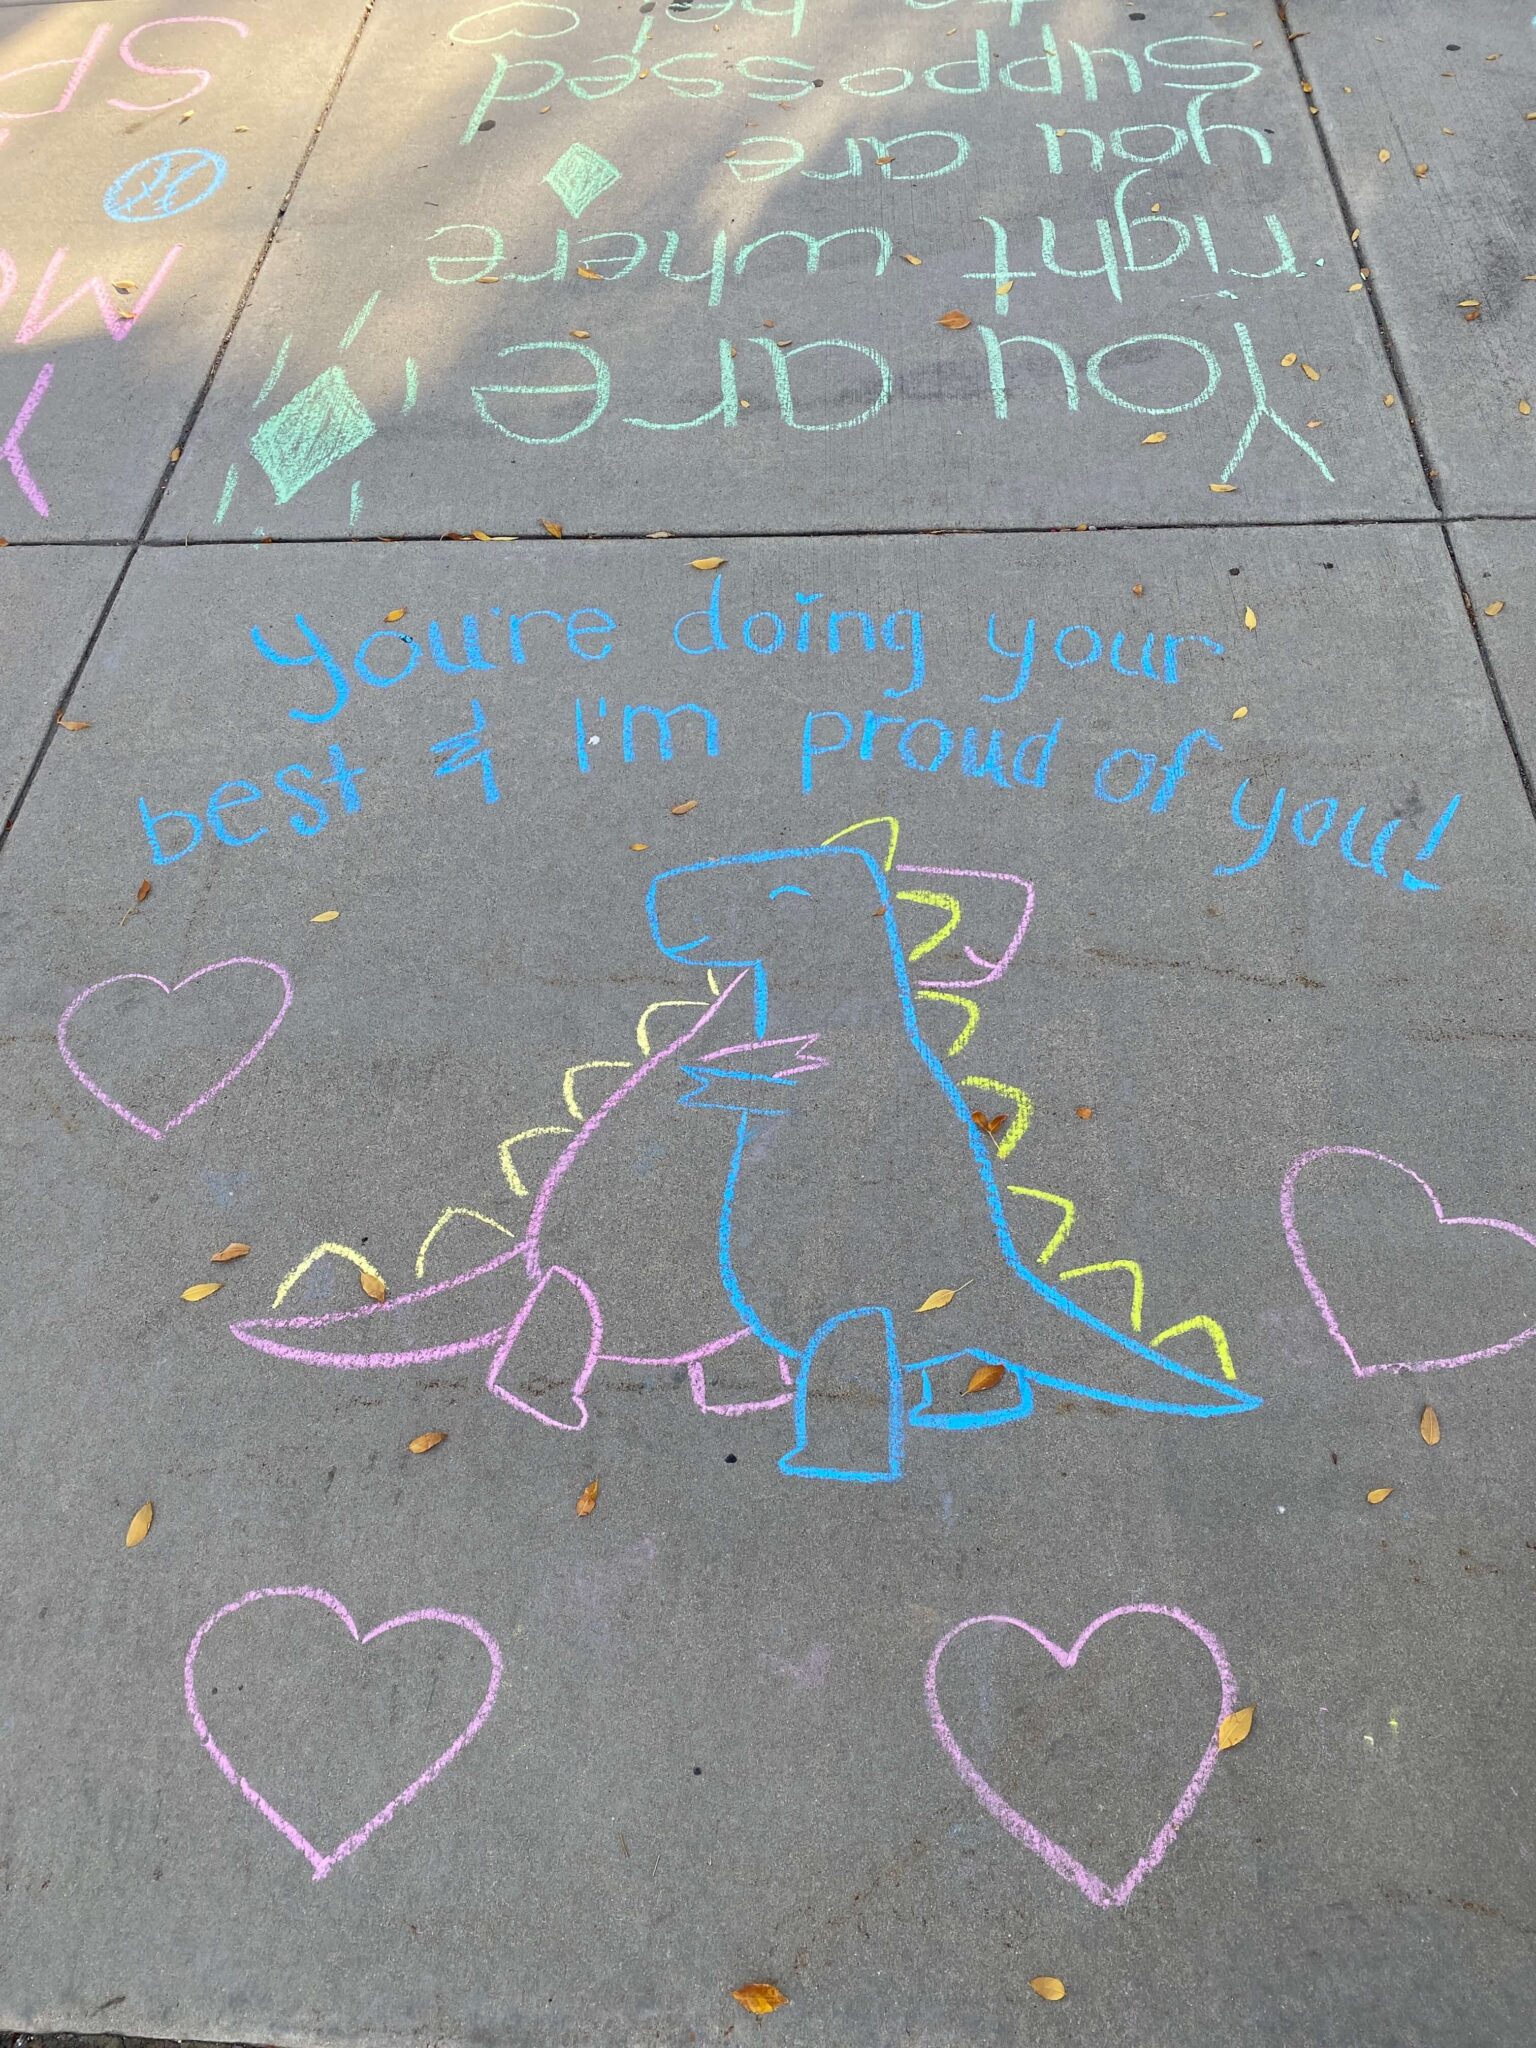 You're doing your
best & I'm proud of
you!
You are
right where
you are
supposed
to be!